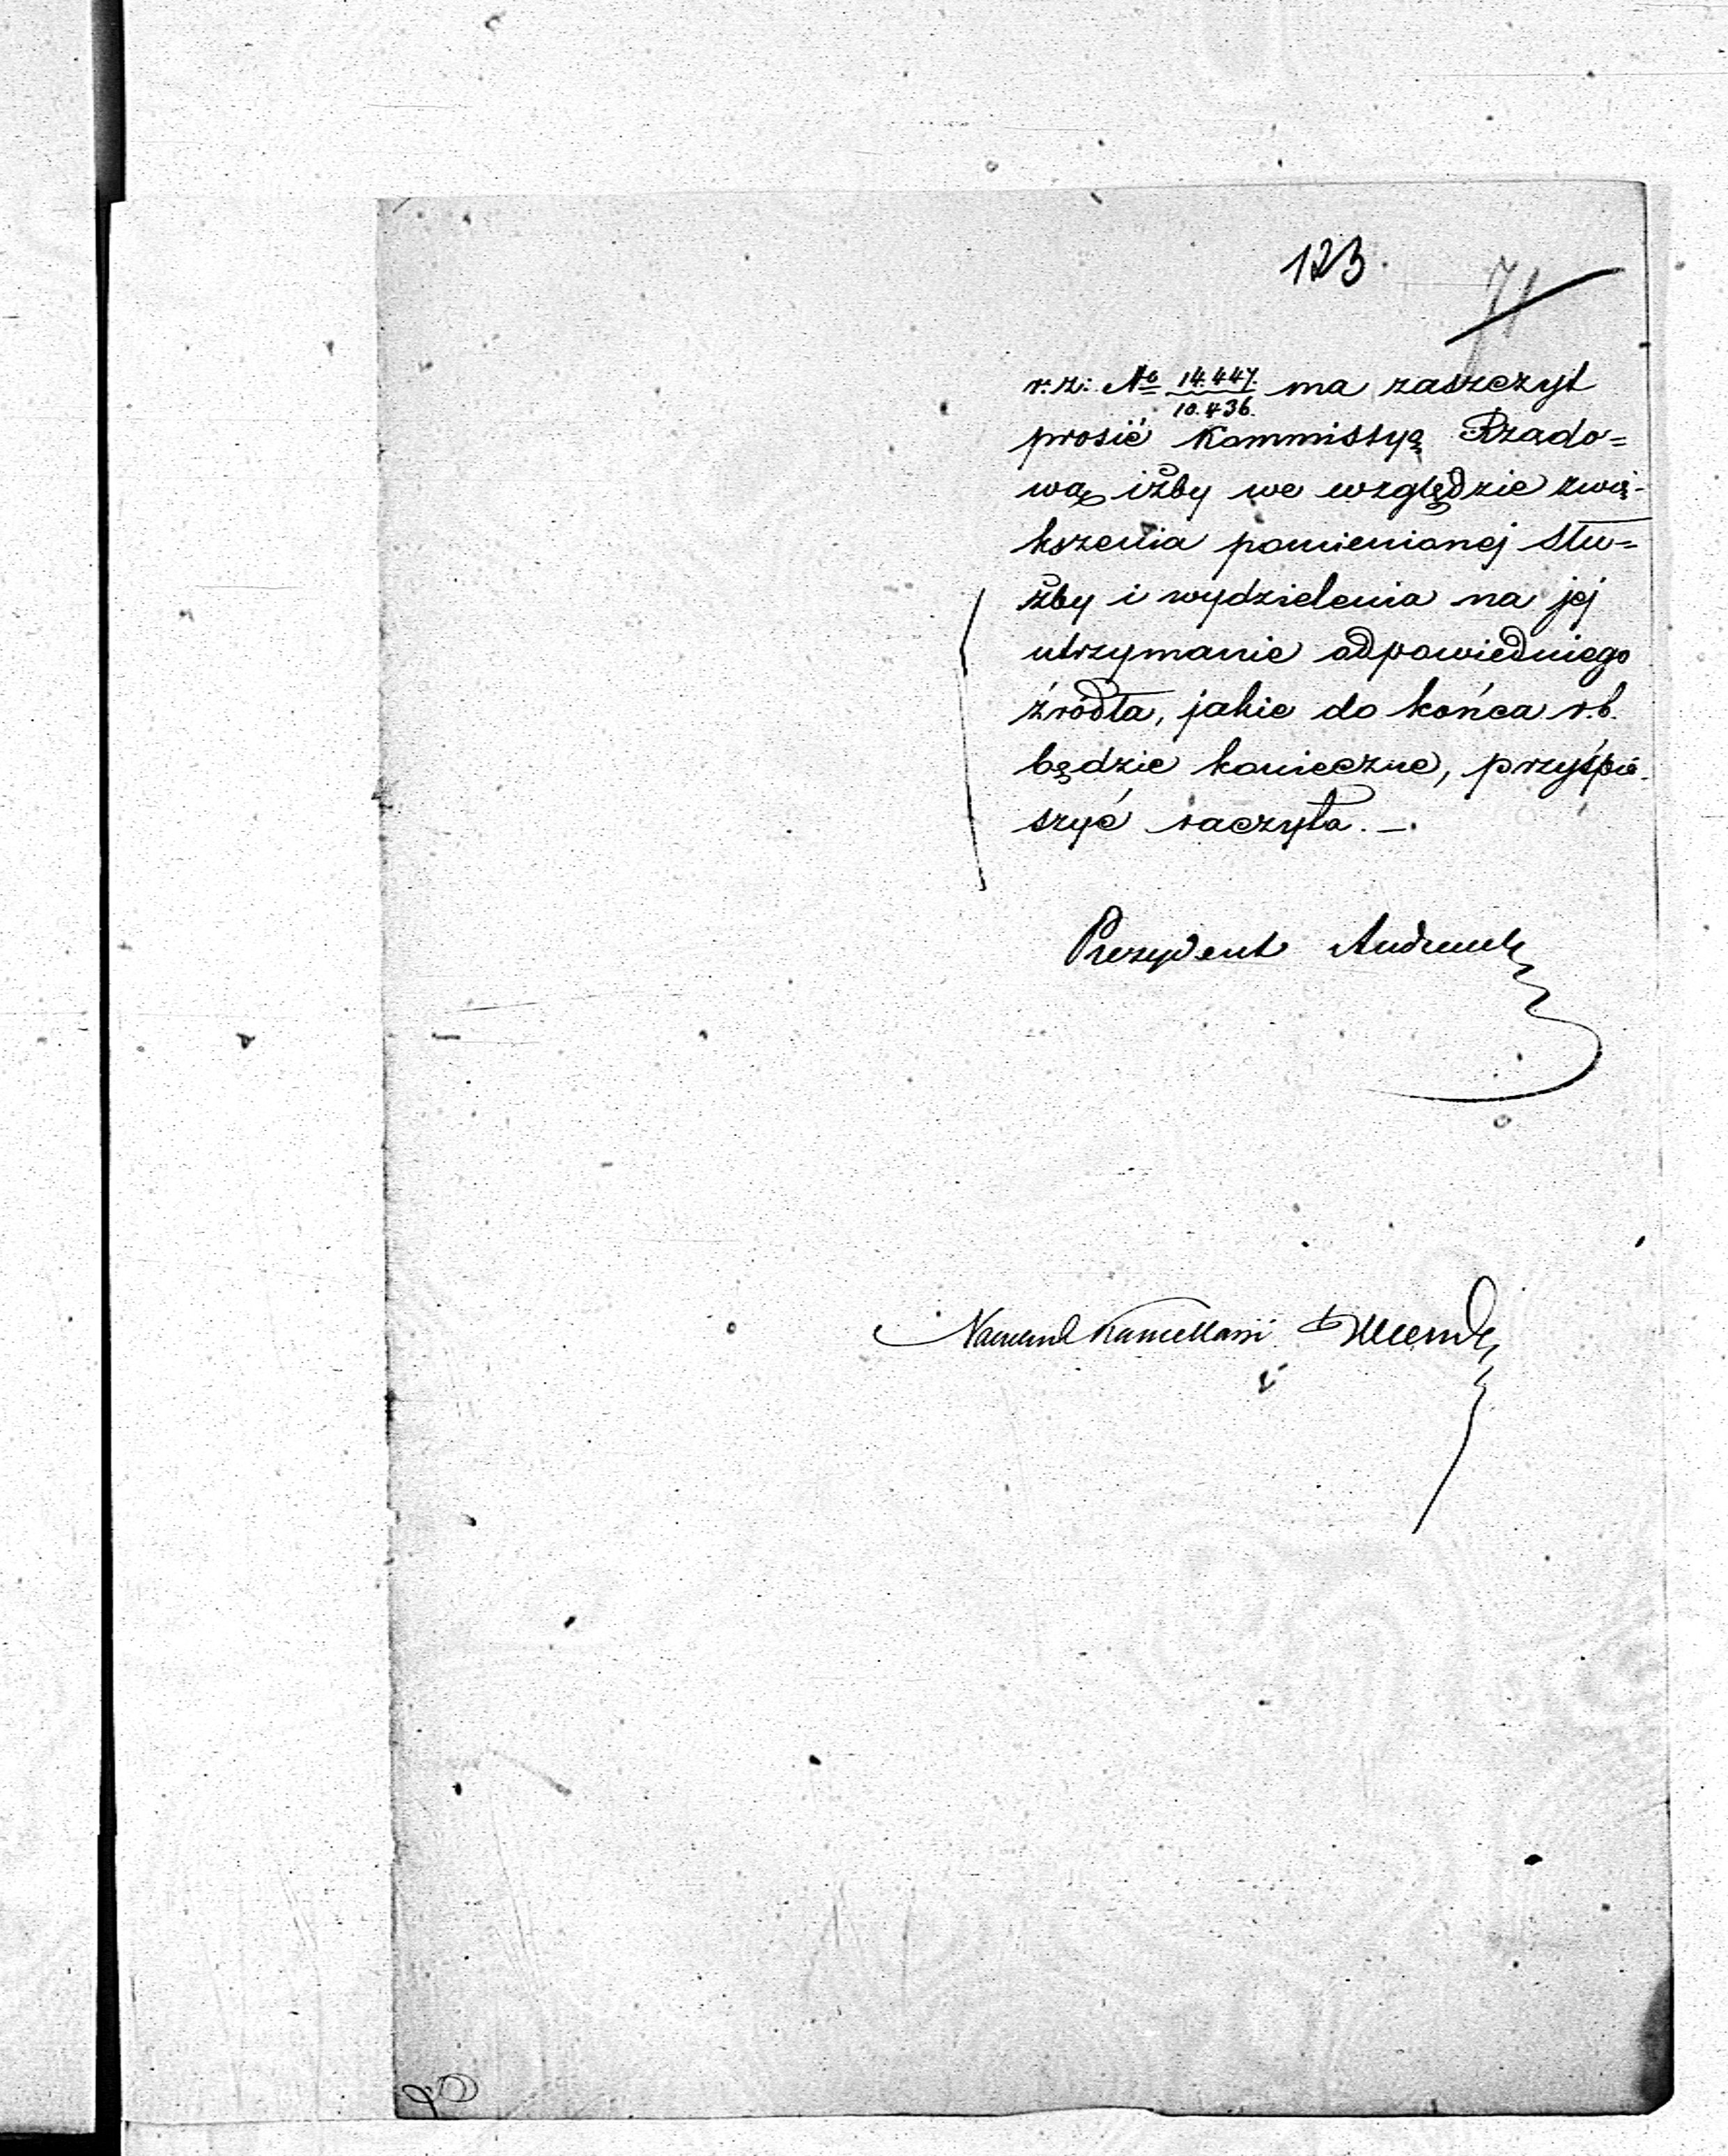 123.
71
r: z: № 14.447./10.436. ma zaszczyt
prosić Kommissyą Rządo=
wą, iżby we względzie zwię-
kszenia pomienionej Słu=
żby i wydzielenia na jej
utrzymanie odpowiedniego
źródła, jakie do końca r.b.
będzie konieczne, przyśpie-
szyć raczyła. —
Prezydent
Naczelnik Kancellarii